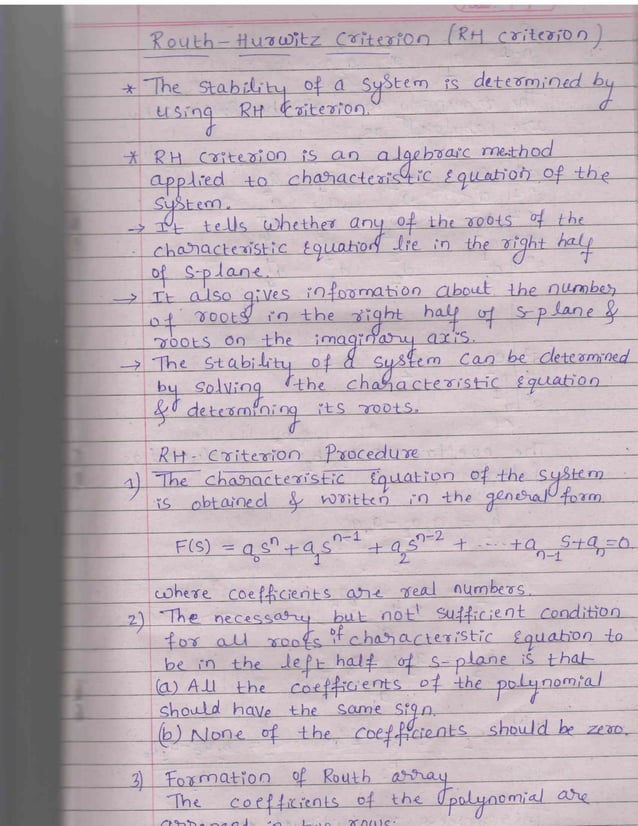 Routh-Hurwitz Criterion (RH criterion)
* The stability of a system is determined by
using RH Criterion.
* RH criterion is an algebraic method
applied to characteristic Equation of the
system.
→ It tells whether any of the roots of the
characteristic Equation lie in the right half
of s-plane.
→ It also gives information about the number
of roots in the right half of s-plane &
roots on the imaginary axis.
→ The stability of a system can be determined
by solving the characteristic Equation
& determining its roots.
RH-Criterion Procedure
1) The characteristic Equation of the system
is obtained & written in the general form
F(s) = a₀sⁿ + a₁sⁿ⁻¹ + a₂sⁿ⁻² + ..... + aₙ₋₁ s + aₙ = 0
where coefficients are real numbers.
2) The necessary but not sufficient condition
for all roots of characteristic Equation to
be in the left half of s-plane is that
(a) All the coefficients of the polynomial
should have the same sign.
(b) None of the coefficients should be zero.
3) Formation of Routh array
The coefficients of the polynomial are